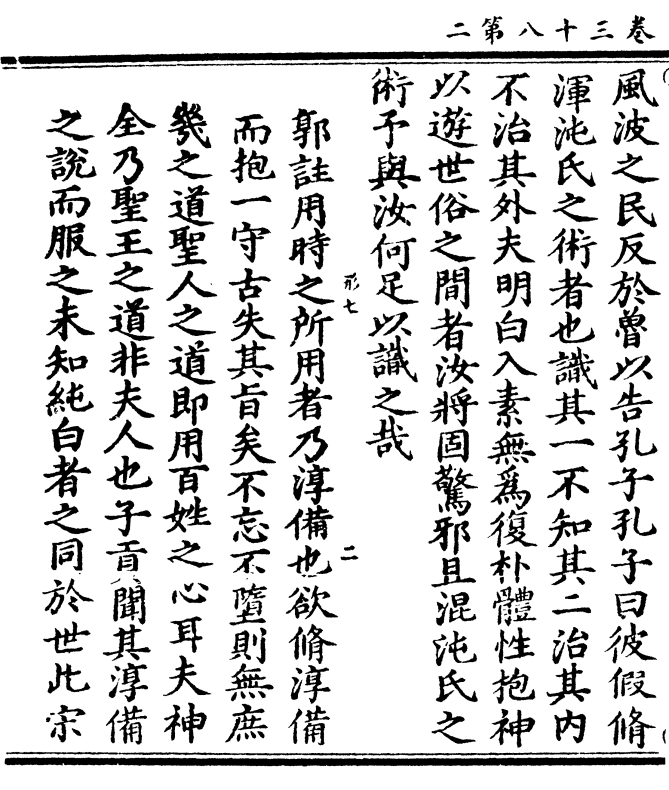 卷三十八第二
風波之民反於魯以告孔子孔子曰彼假脩
渾沌氏之術者也識其一不知其二治其內
不治其外夫明白入素無爲復朴體性抱神
以遊世俗之間者汝將固驚邪且混沌氏之
術予與汝何足以識之哉
形七
二
郭註用時之所用者乃淳備也欲脩淳備
而抱一守古失其旨矣不忘不墮則無庶
幾之道聖人之道即用百姓之心耳夫神
全乃聖王之道非夫人也子貢聞其淳備
之說而服之未知純白者之同於世此宗